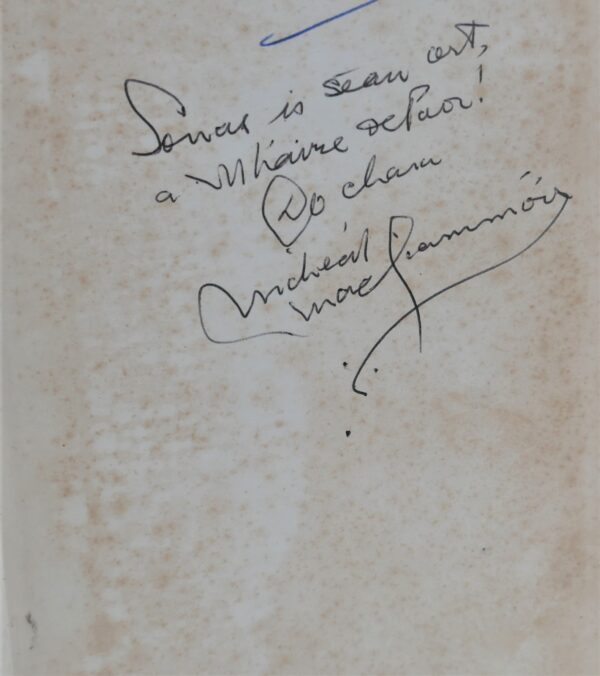 Sonas is séan ort,
a Mháire de Paor!
Do chara
Micheál
mac Liammóir